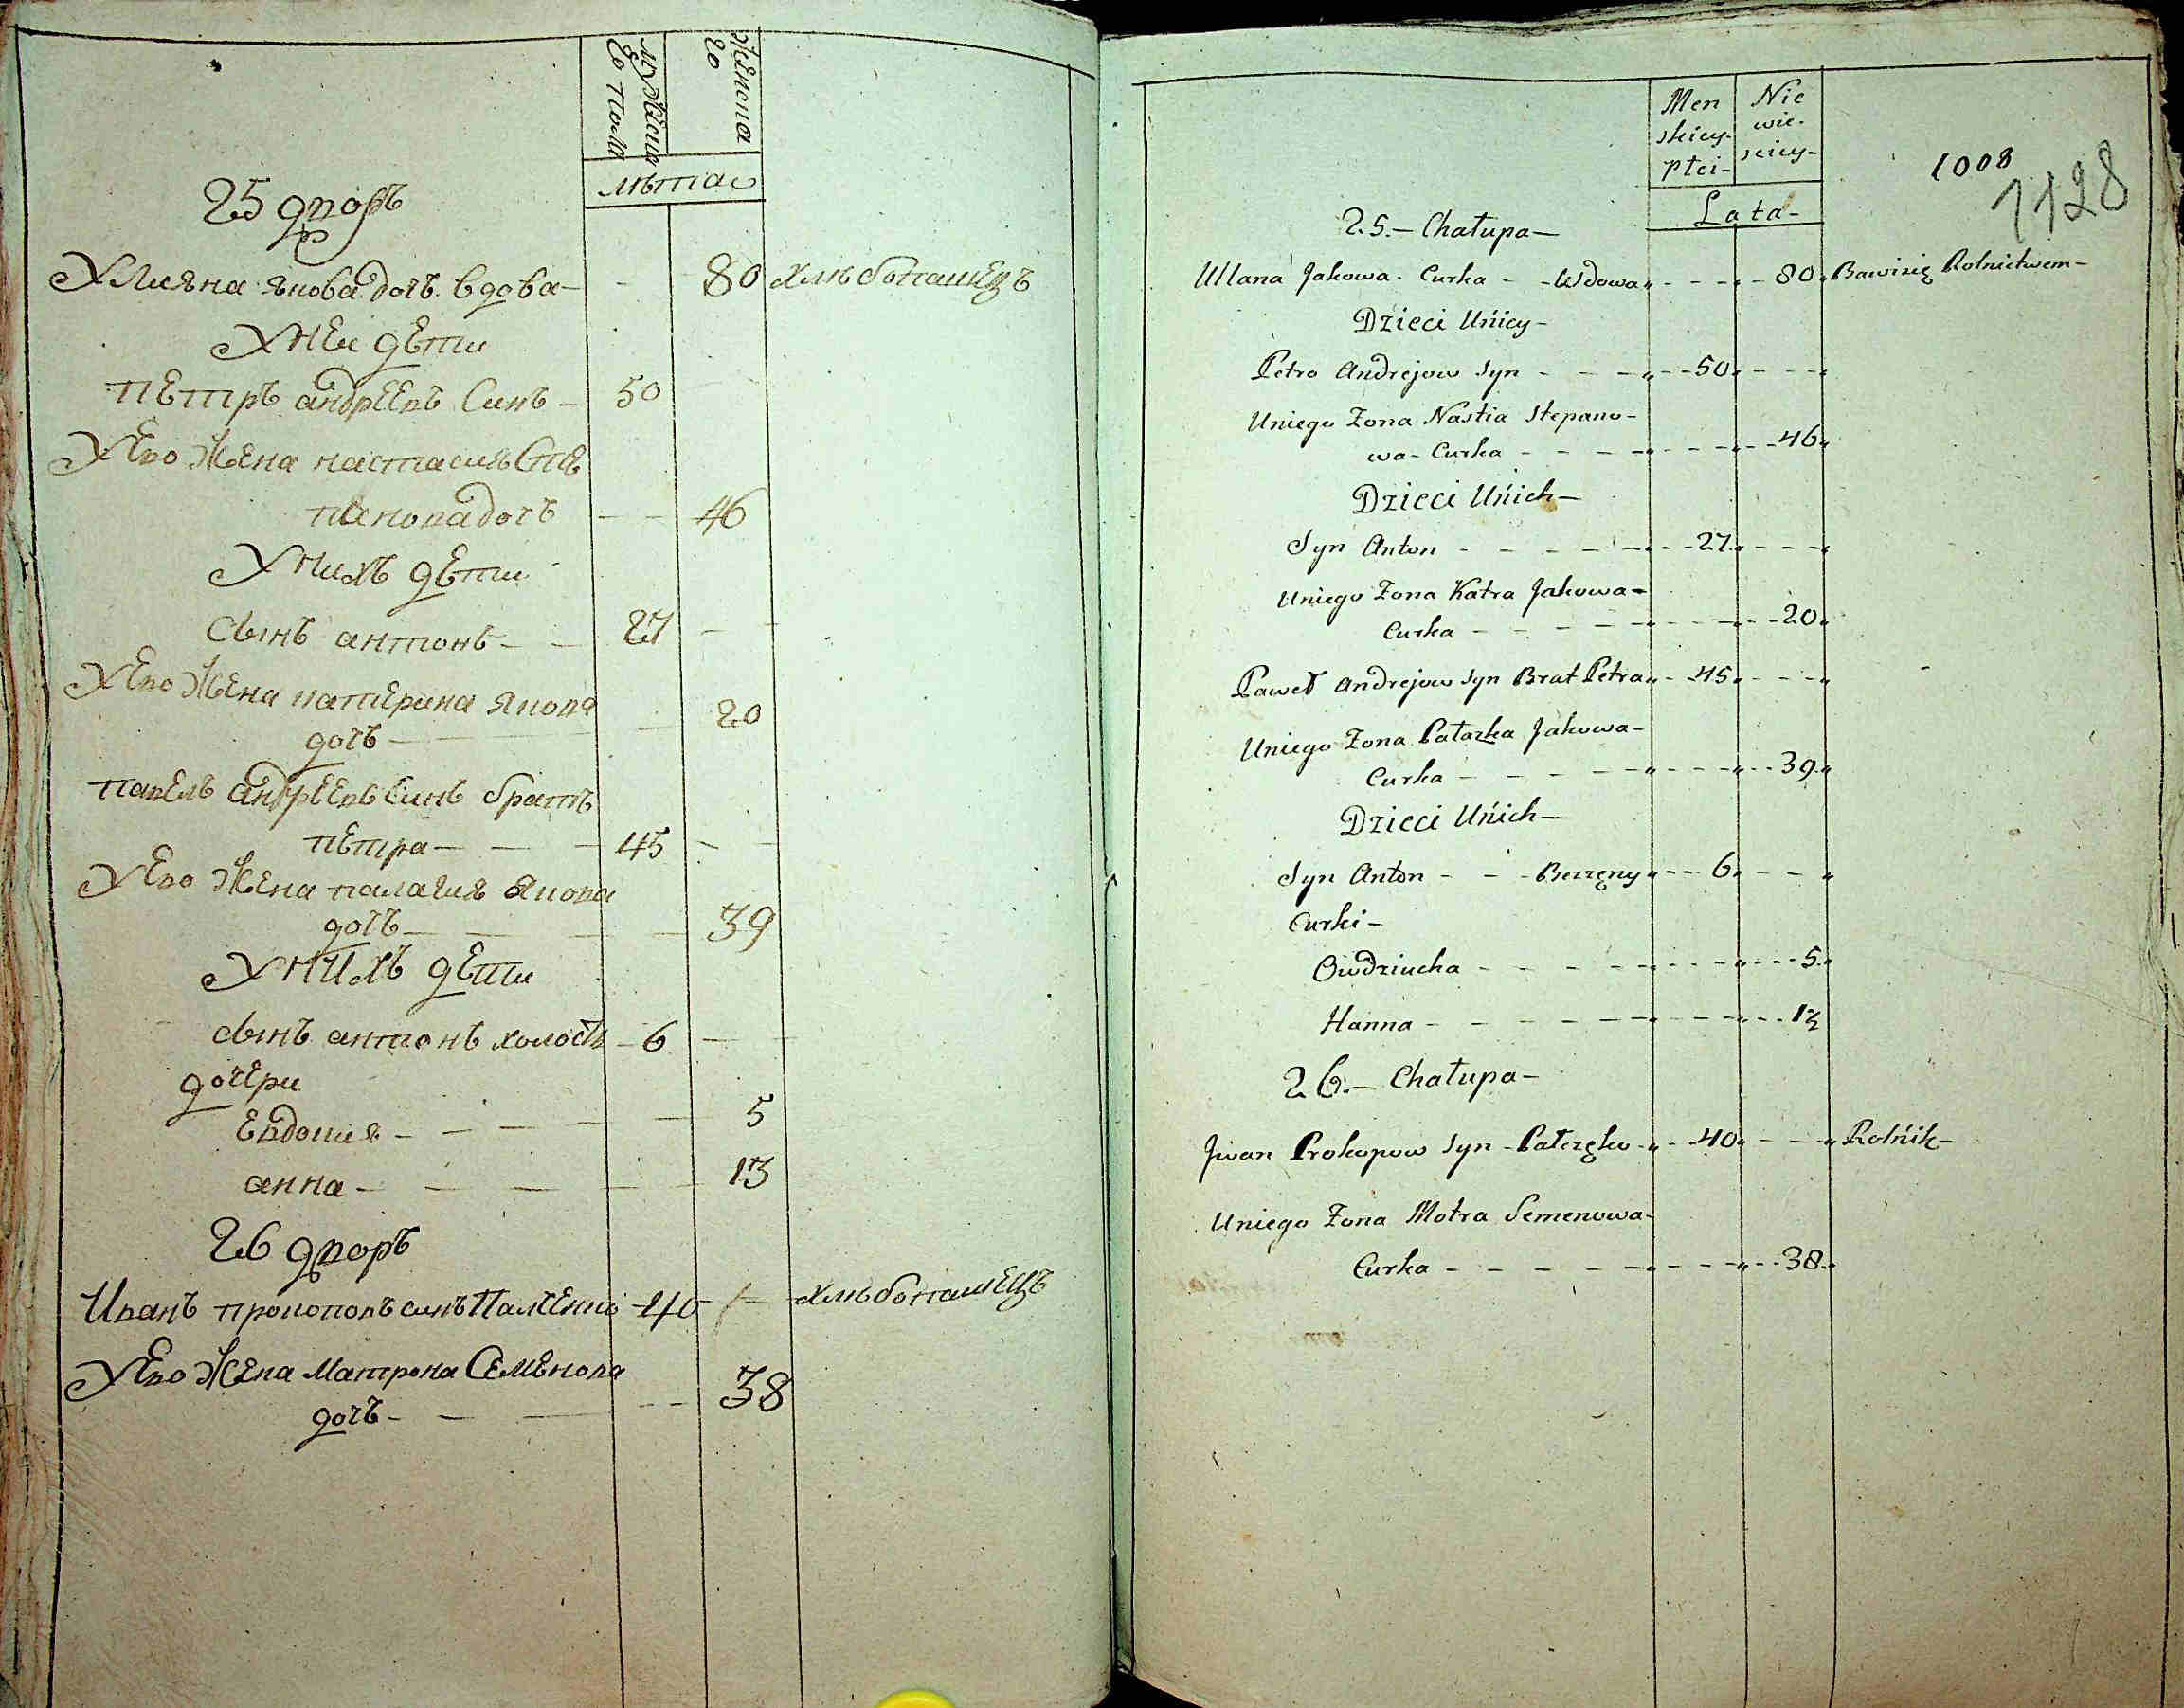 мужеска
го пола
женска
го
лѣта
25 дворъ
Улияна яковадочъ вдова - - 80 хлѣбопашецъ
У неи дети
петръ андреевъ Синъ - 50
У ево жена настасия Сте
пановадочъ - - 46
У нихъ дети
сынъ антонъ - - 27 -
У ево жена катерина якова
дочъ - - 20
павелъ андреевъ синъ братъ
петра - - - 45 - -
У ево жена палагия якова
дочъ - - - - 39
У нихъ дети
сынъ антонъ холостъ - 6 -
дочери
Евдокия - - - - - - 5
анна - - - - - - 13
26 дворъ
Иванъ прокоповъ синъ Палченко - 40 - - хлѣбопашецъ
У ево жена матрона Семенова
дочъ - - - - - 38
Men
skiey-
płci-
Nie
wie-
sciey-
1008
1128
Lata-
25.- Chałupa-
Ulana Jakowa. Curka - - Wdowa - - - - 80. Bawisię Rolnictwem-
Dzieci Uniey-
Petro Andrejow Syn - - - - - 50. - - - -
Uniego Żona Nastia Stepano-
wa- Curka - - - - - - - - - 46.
Dzieci Unich-
Syn Anton - - - - - - - 27. - - - -
Uniego Żona Katra Jakowa-
Curka - - - - - - - - - 20.
Paweł Andrejow Syn Brat Petra - - 45. - - - -
Uniego Żona Pałazka Jakowa-
Curka - - - - - - - - - 39.
Dzieci Unich-
Syn Anton - - - Bezzęny - - - 6. - - -
Curki-
Owdziucha - - - - - - - - - 5.
Hanna - - - - - - - - - 13
26.- Chałupa-
Jwan Prokopow Syn - Pałczęko - - 40. - - - Rolnik-
Uniego Żona Motra Semenowa-
Curka - - - - - - - - - 38.